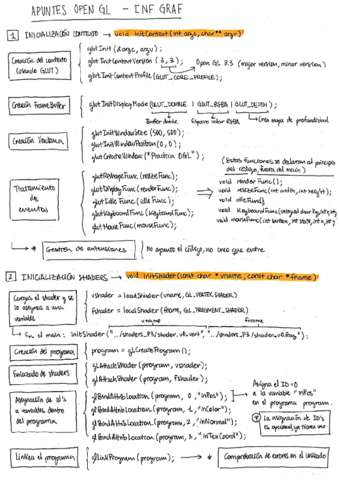 APUNTES OPEN GL - INF GRAF
1 INICIALIZACIÓN CONTEXTO → void initContext(int argc, char** argv)
Creación del contexto (usando GLUT)
glutInit (&argc, argv);
glutInitContextVersion (3,3); → Open GL 3.3 (major version, minor version)
glutInitContextProfile (GLUT_CORE_PROFILE);
Creación FrameBuffer
glutInitDisplayMode (GLUT_DOUBLE | GLUT_RGBA | GLUT_DEPTH);
Buffer doble
Espacio color RGBA
Crea mapa de profundidad
Creación Ventana
glutInitWindowSize (500, 500);
glutInitWindowPosition (0,0);
glutCreateWindow ("Practica OGL");
Tratamiento de eventos
glutReshapeFunc (resizeFunc);
glutDisplayFunc (renderFunc);
glutIdleFunc (idleFunc);
glutKeyboardFunc (keyboardFunc);
glutMouseFunc (mouseFunc);
(Estas funciones se declaran al principio del código, fuera del main)
void renderFunc();
void resizeFunc(int width, int height);
void idleFunc();
void keyboardFunc(unsigned char key, int x, int y);
void mouseFunc(int button, int state, int x, int y);
* Gestión de extensiones → No apunto el código, no creo que entre
2 INICIALIZACIÓN SHADERS → void initShader(const char * vname, const char * fname)
Cargas el shader y se lo asignas a una variable
vshader = loadShader (vname, GL_VERTEX_SHADER)
fshader = loadShader (fname, GL_FRAGMENT_SHADER)
vname
fname
En el main: initShader("../shaders_P3/shader.v0.vert", "../shaders_P3/shader_v0.frag");
Creación del programa
program = glCreateProgram();
Enlazado de shaders
glAttachShader (program, vshader);
glAttachShader (program, fshader);
Asignación de id's a variables dentro del programa
glBindAttribLocation (program, 0, "inPos");
glBindAttribLocation (program, 1, "inColor");
glBindAttribLocation (program, 2, "inNormal");
glBindAttribLocation (program, 3, "inTexCoord");
Asigna el ID=0 a la variable "inPos" en el programa program.
* La asignación de ID's es opcional,
Linkea el programa
glLinkProgram (program); → * Comprobación de errores en el linkado